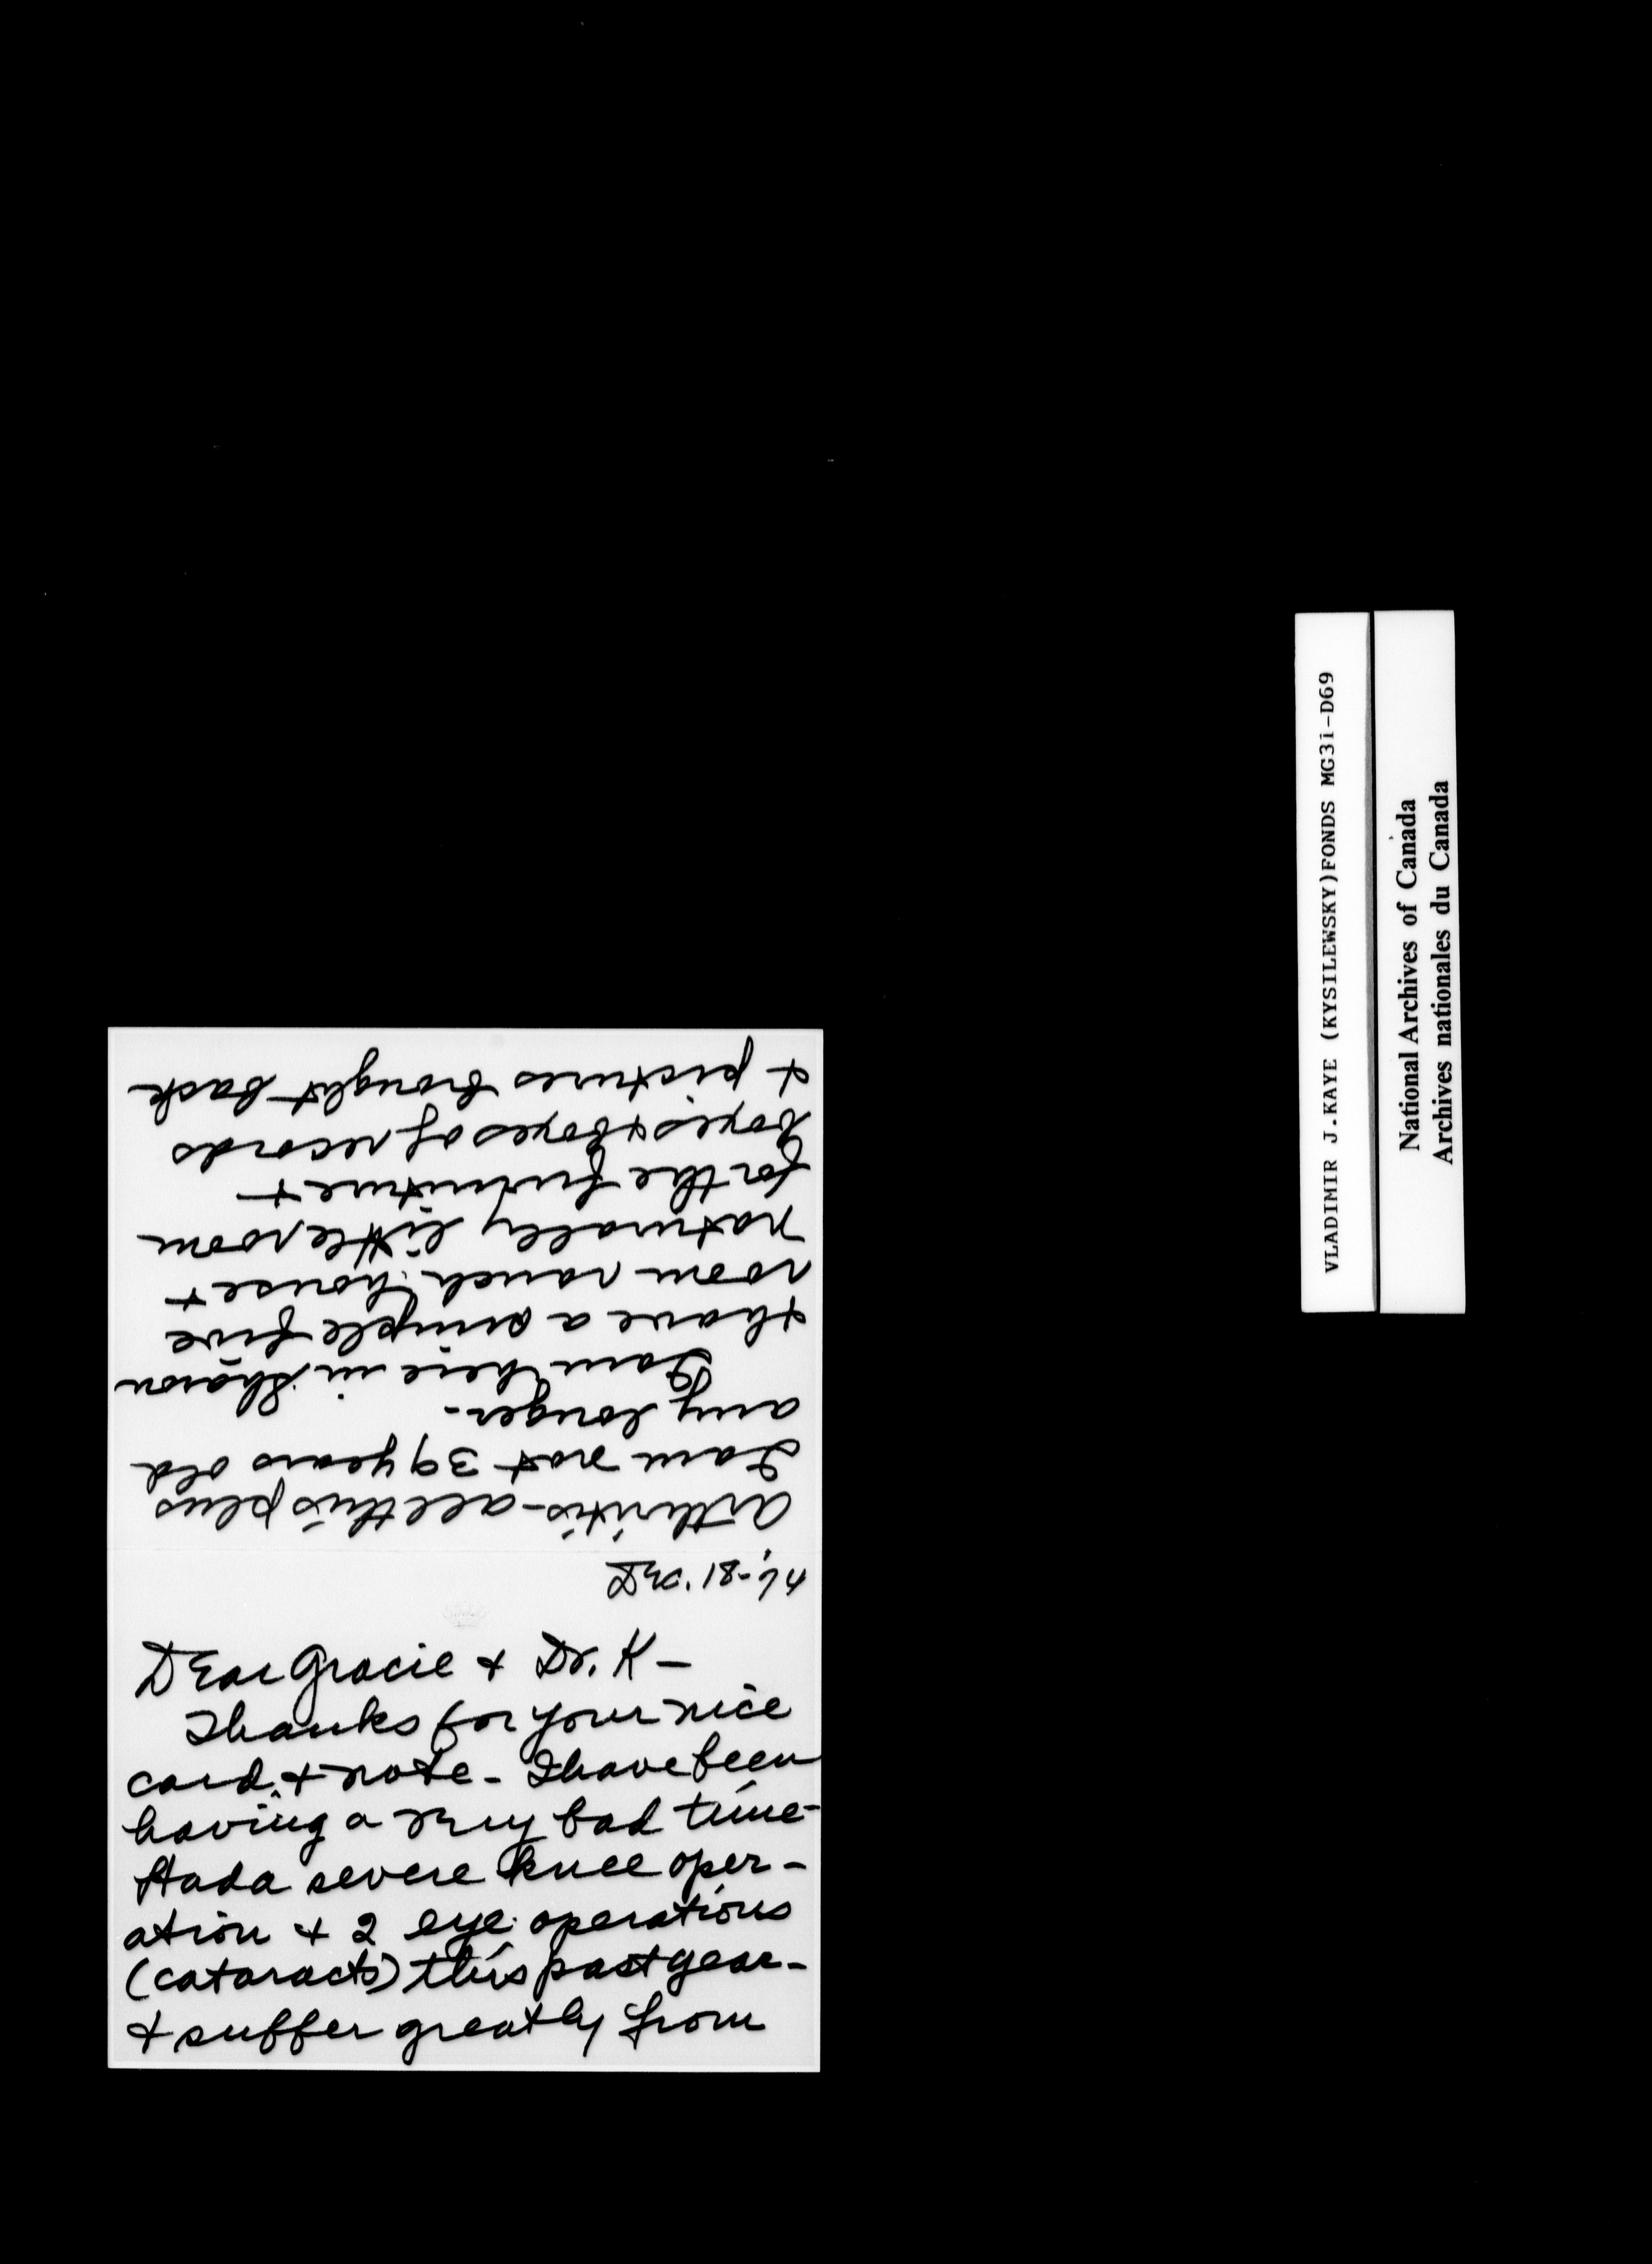 Dear Gracie & Dr. K —
Thanks for your nice
card & note - I have been
having a very bad time -
Had a severe knee oper-
ation & 2 eye operations
(cataracts) this past year -
& suffer greatly from
Dec. 18-
arthritis - all this plus
I am not 39 years old
any longer -
I am here in Sharon
& have a simple five
room ranch house &
naturally little room
for the furniture &
boxes & boxes of records
& pictures brought back
VLADIMIR J.KAYE (KYSILEWSKY)FONDS MG31-D69
National Archives of Canada
Archives nationales du Canada